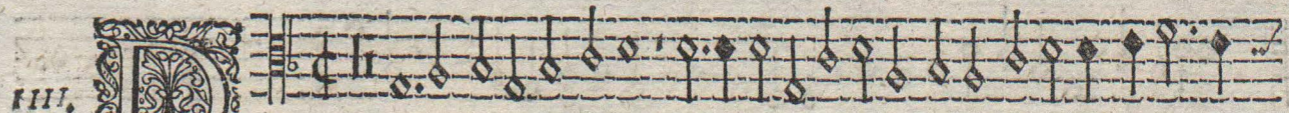 IIII.
D